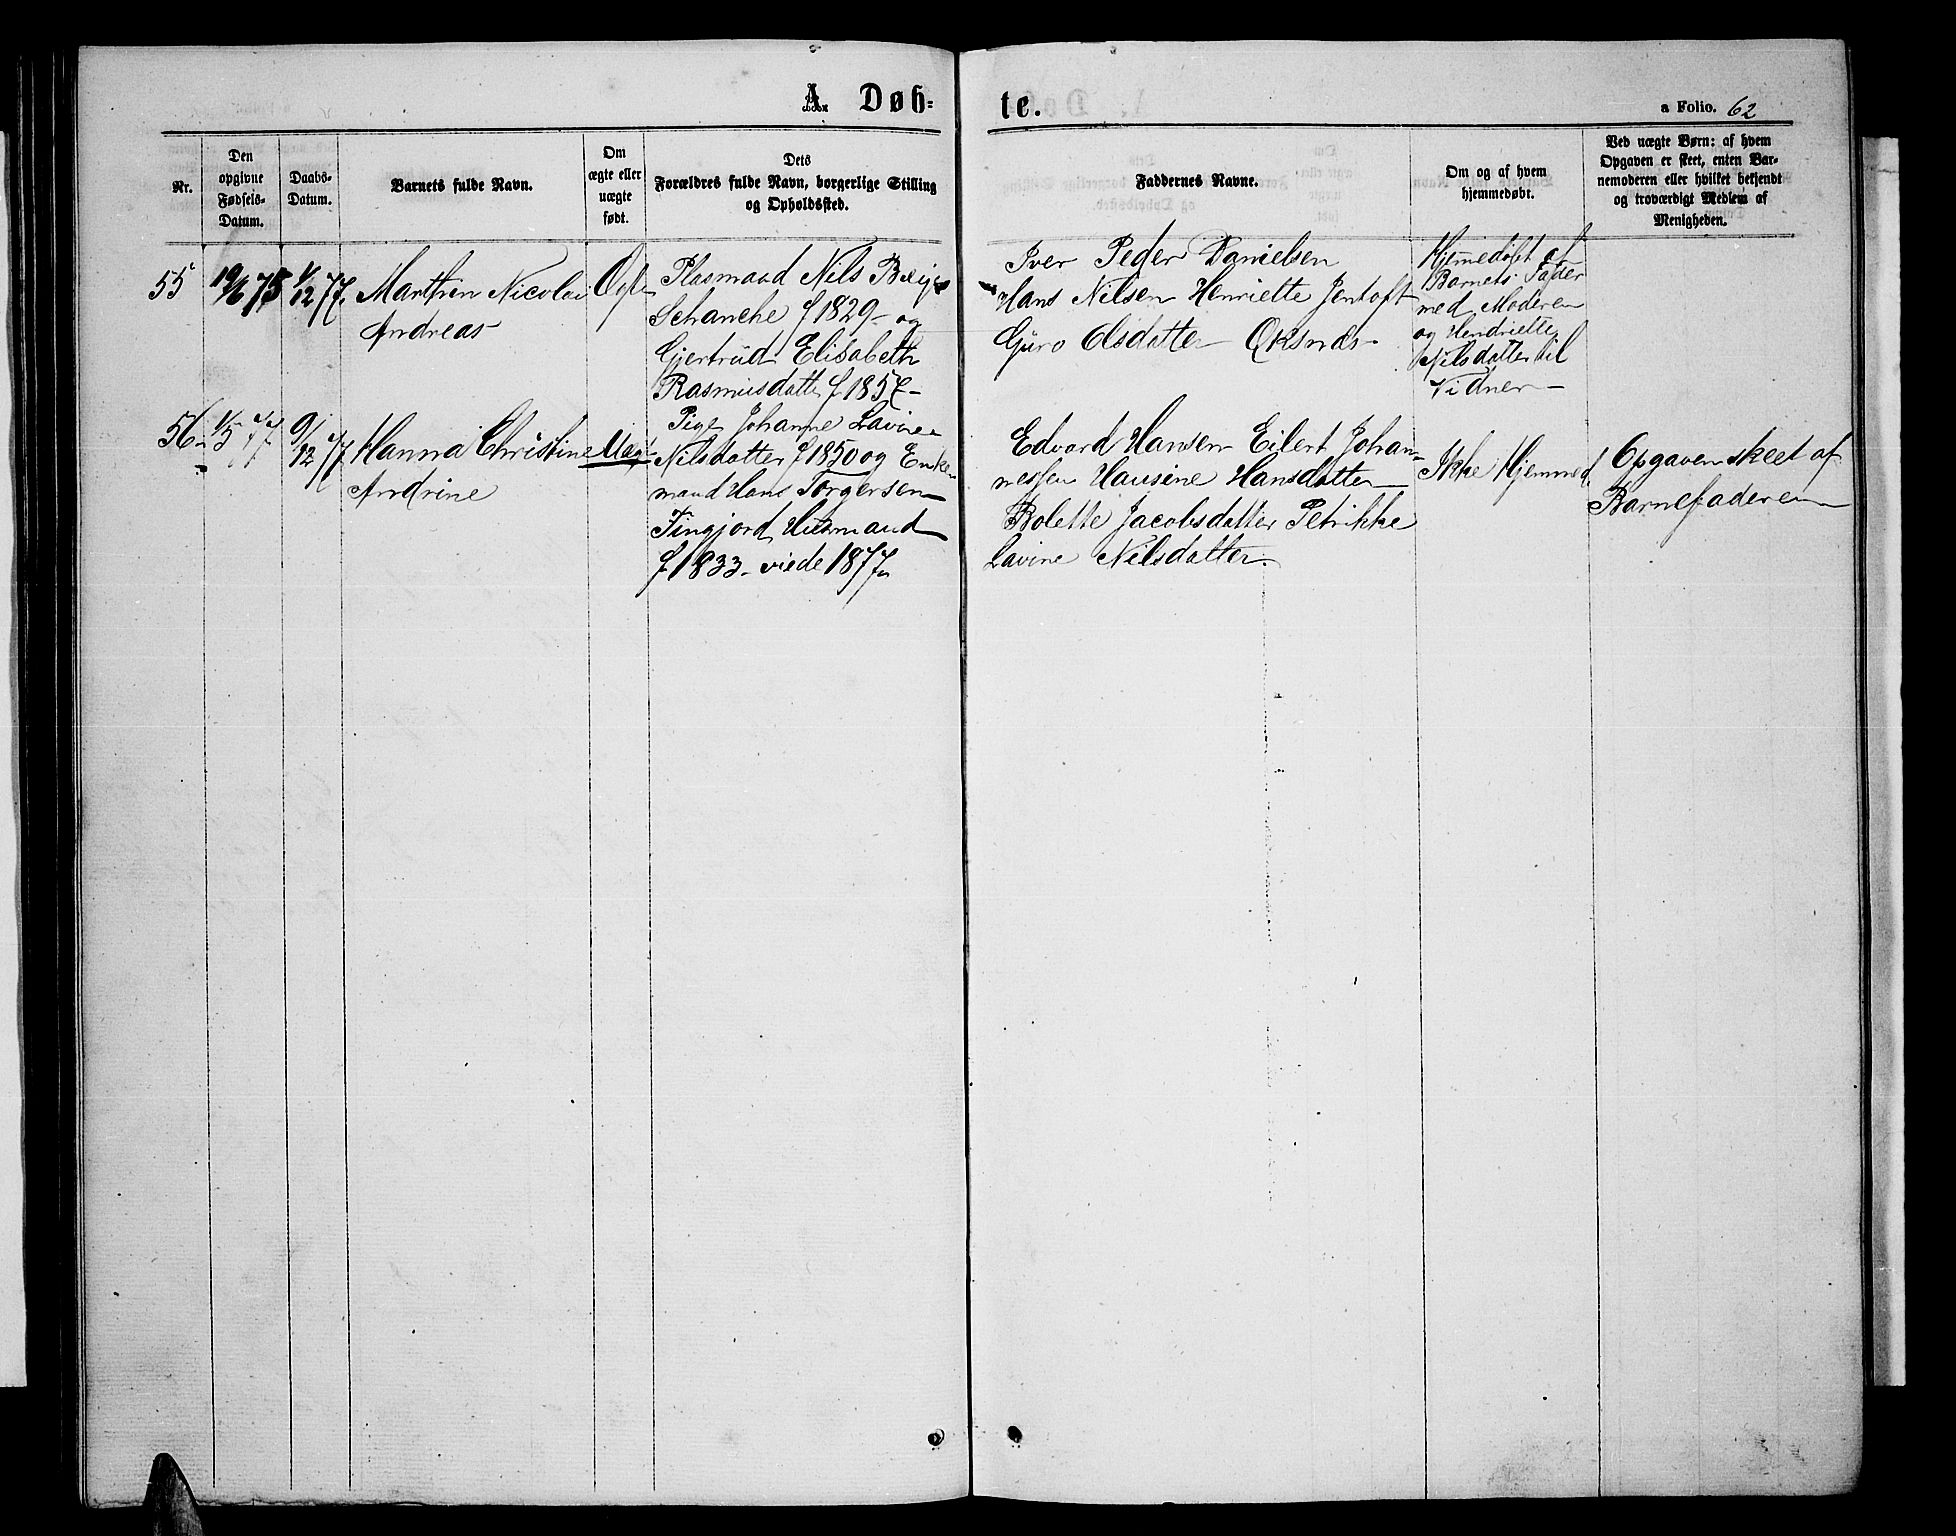 A. Døb=
te.
a Folio. 62
Nr.
Den
opgivne
Fødsels-
Datum.
Daabs-
Datum.
Barnets fulde Navn.
Om
ægte eller
uægte
født.
Dets
Forældres fulde Navn, borgerlige Stilling
og Opholdssted.
Faddernes Navne.
Om og af hvem
hjemmedøbt.
Ved uægte Børn: af hvem
Opgaven er skeet, enten Bar-
nemoderen eller hvilket bekjendt
og troværdigt Medlem af
Menigheden.
55
75
1/12 77.
Marthen Nicolai
Andreas
Plasmand Nils
Schanche f 1829 og
Gjertrud Elisabeth
Rasmusdatter f 1857
Iver Peder Danielsen
Hans Nilsen Henriette Jentoft
Guro Olsdatter Øksnæs
Hjemmedøbt af
Barnets Fader
med Moderen
og Hendriette
Nilsdatter til
Vidner
56
1/5 77
9/12 77
Hanna Christine
Andrine
Uæg
Pige Johanne Lavine
Nilsdatter f 1850 og Enke-
mand Hans Torgersen
Tingjord Husmand
f 1833 viede 1877
Edvard Hansen Eilert Johan-
nessen Hansine Hansdatter
Bolette Jacobsdatter Petrikke
Lavine Nilsdatter.
Ikke Hjemmed.
Opgaven skeet af
Barnefaderen